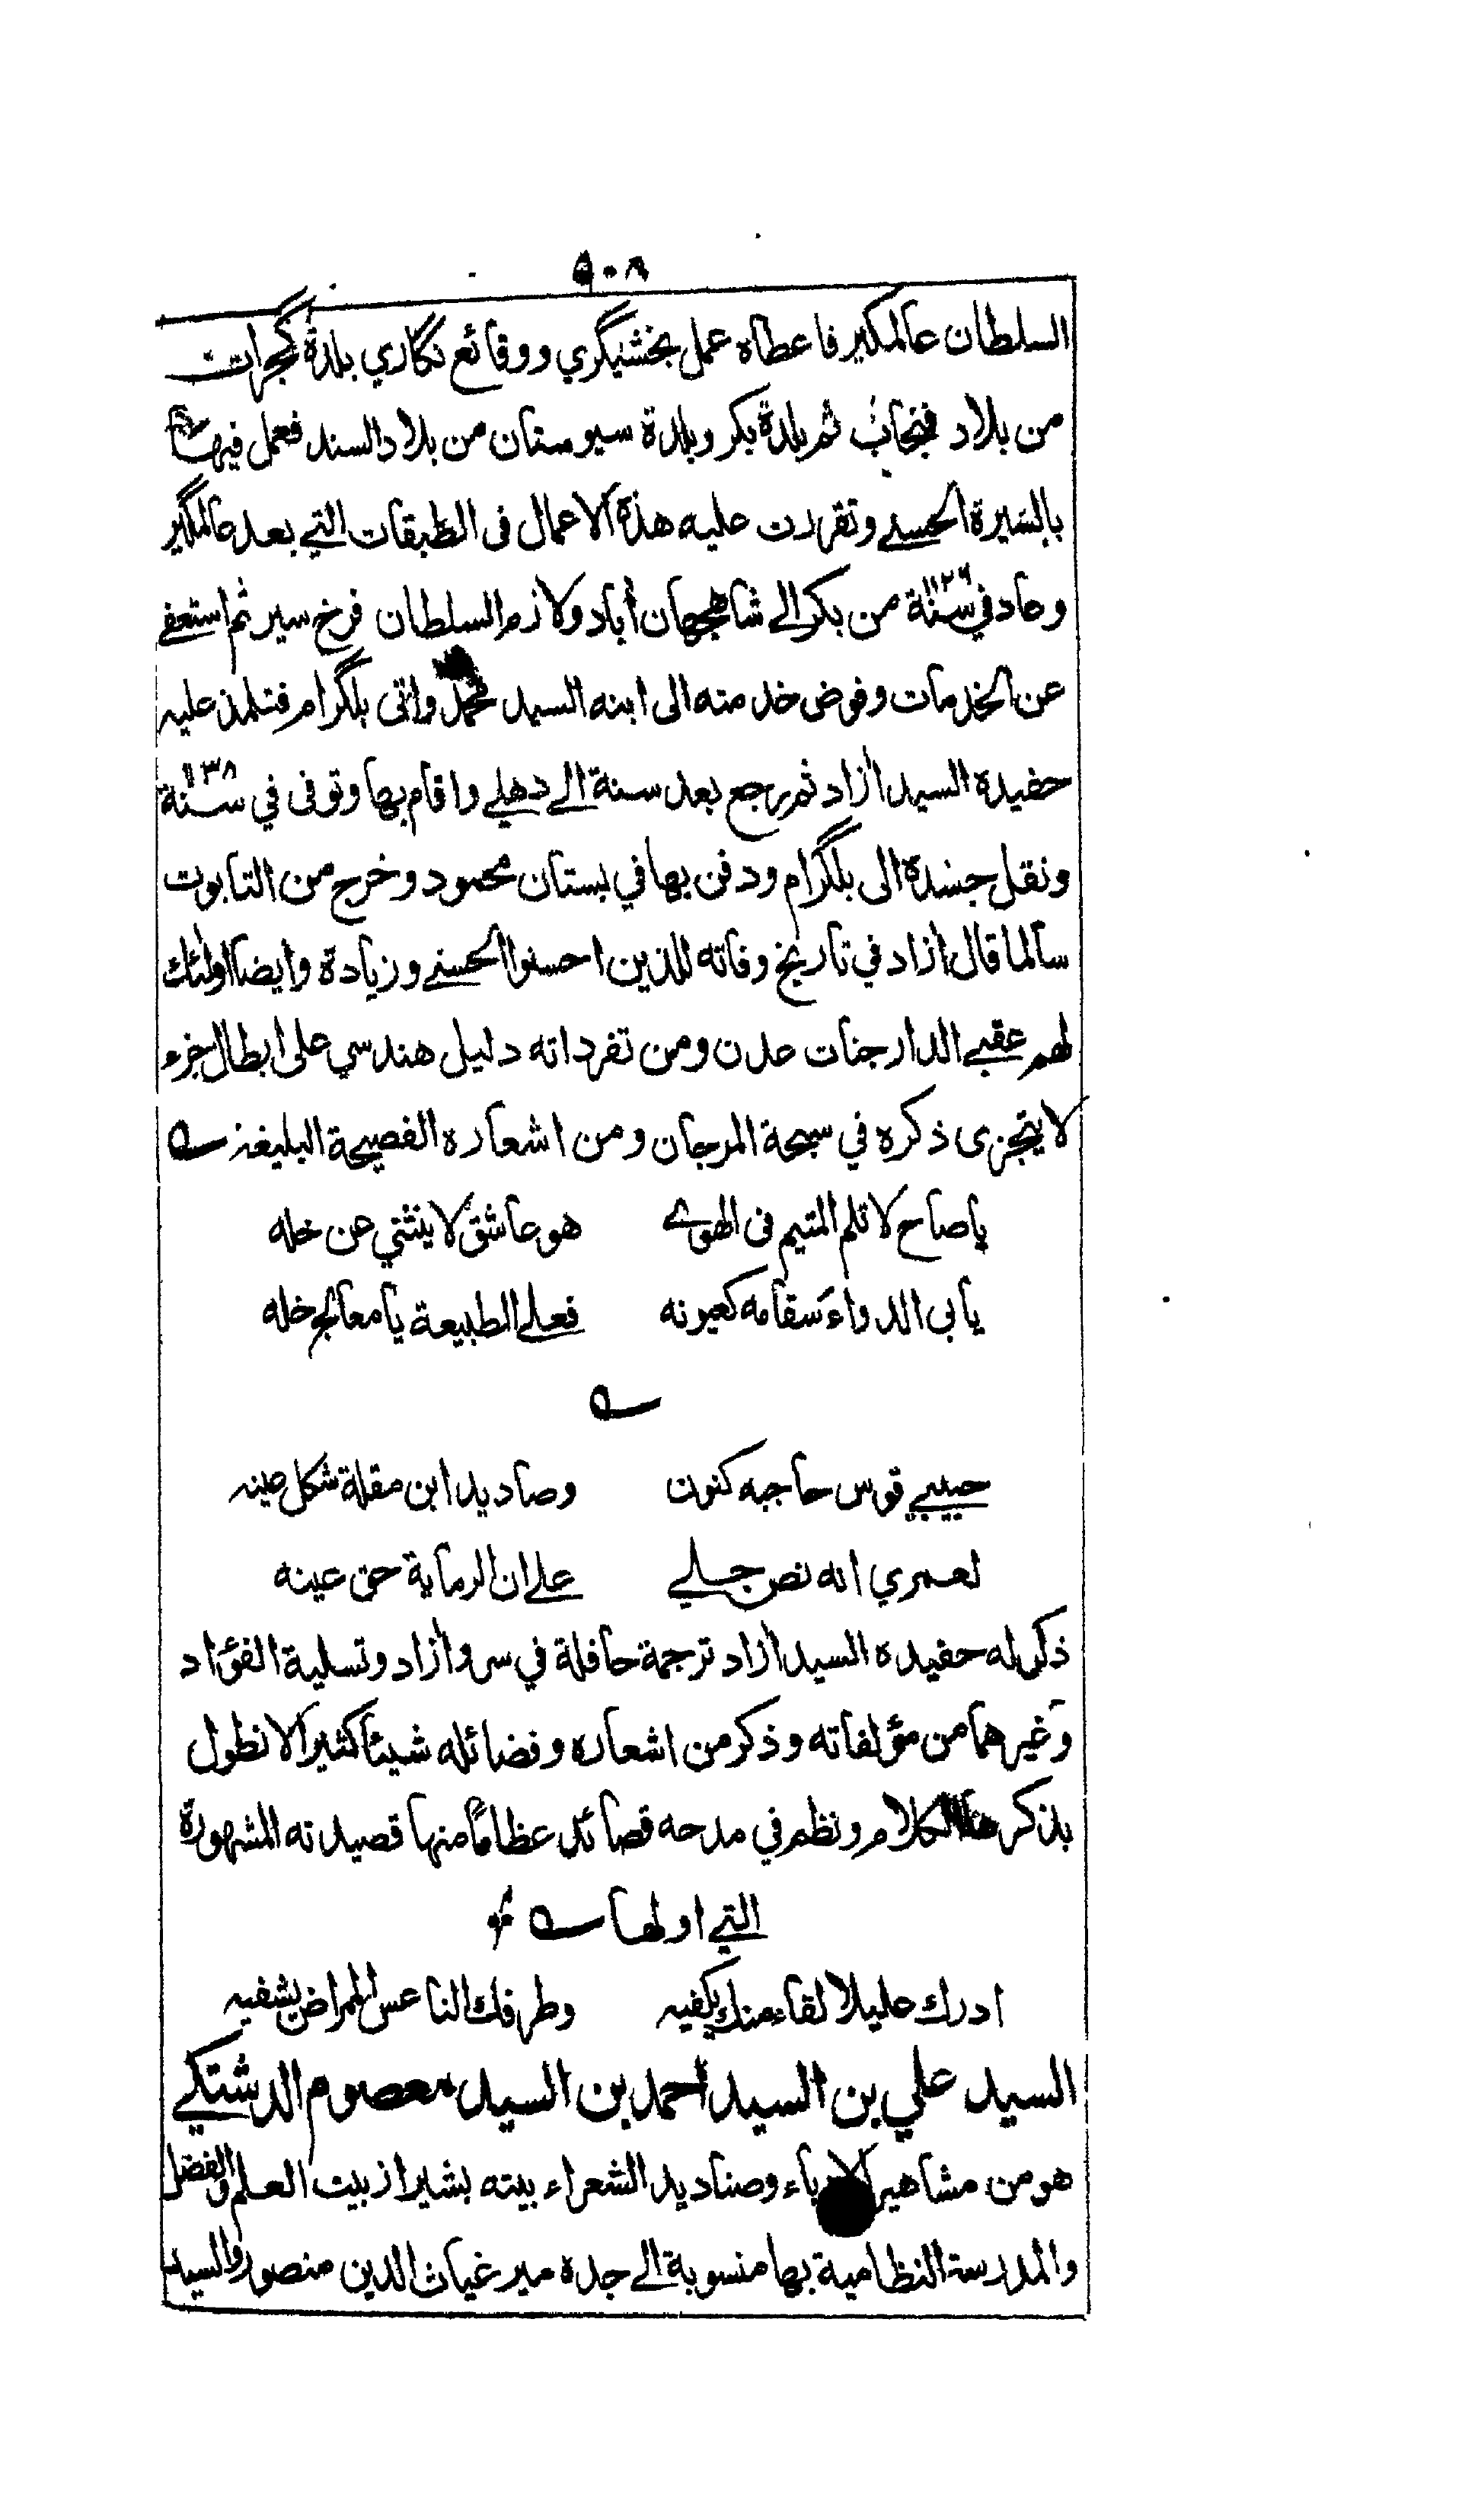 ٩٠٨
السلطان عالمگير فاعطاه عمل بخشيگري ووقائع نگاري بلدة گجرات
من بلاد فنجاب ثم بلدة بكر وبلدة سيوستان من بلاد السند فعمل فيها
بالسيرة الحسنے وتقررت عليه هذه الاعمال فى الطبقات التے بعد عالمگير
وعاد في سنة ١١٢٦ من بكر الے شاهجهان أباد ولازم السلطان فرخ سير ثم استعفے
عن الخدمات وفوض خدمته الى ابنه السيد محمد واتى بلگرام فتلمذ عليه
حفيده السيد أزاد ثم رجع بعد سنة الے دهلے واقام بها وتوفى في سنة ١١٣٨
ونقل جسده الى بلگرام ودفن بها في بستان محمود وخرج من التابوت
سالما قال أزاد في تاريخ وفاته للذين احسنوا الحسنے وزيادة وايضا اولئك
لهم عقبے الدار جنات عدن ومن تفرداته دليل هندسي على ابطال جزء
لا يتجزى ذكره في سبحة المرجان ومن اشعاره الفصيحة البليغة ؎
يا صاح لا تلم المتيم فى الهوے هو عاشق لا ينثني عن خله
يابى الدواء سقامه كعيونه فعلے الطبيعة يا معالج خله
؎
حبيبے قوس حاجبه كنون وصاد يد ابن مقلة شكل عينه
لعمري انه نص جلے علے ان الرماية حق عينه
ذكر له حفيده السيد أزاد ترجمة حافلة في سرو أزاد وتسلية الفؤاد
وغيرهما من مؤلفاته وذكر من اشعاره وفضائله شيئا كثيرا لا نطول
بذكر الكلام ونظم في مدحه قصائد عظاما منها قصيدته المشهورة
التے اولها ؎
ادرك عليلا لقاء منك يكفيه وطرفك الناعس الممراض يشفيه
السيد علي بن السيد احمد بن السيد معصوم الدشتكے
هو من مشاهير الادباء وصناديد الشعراء بيته بشيراز بيت العلم والفضل
والمدرسة النظامية بها منسوبة الے جده مير غياث الدين منصور والسيد